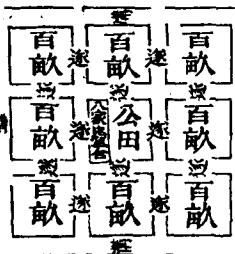 百畝 遂 百畝 遂 百畝
遂 遂 遂
百畝 遂 公田 遂 百畝
遂 遂 遂
百畝 遂 百畝 遂 百畝